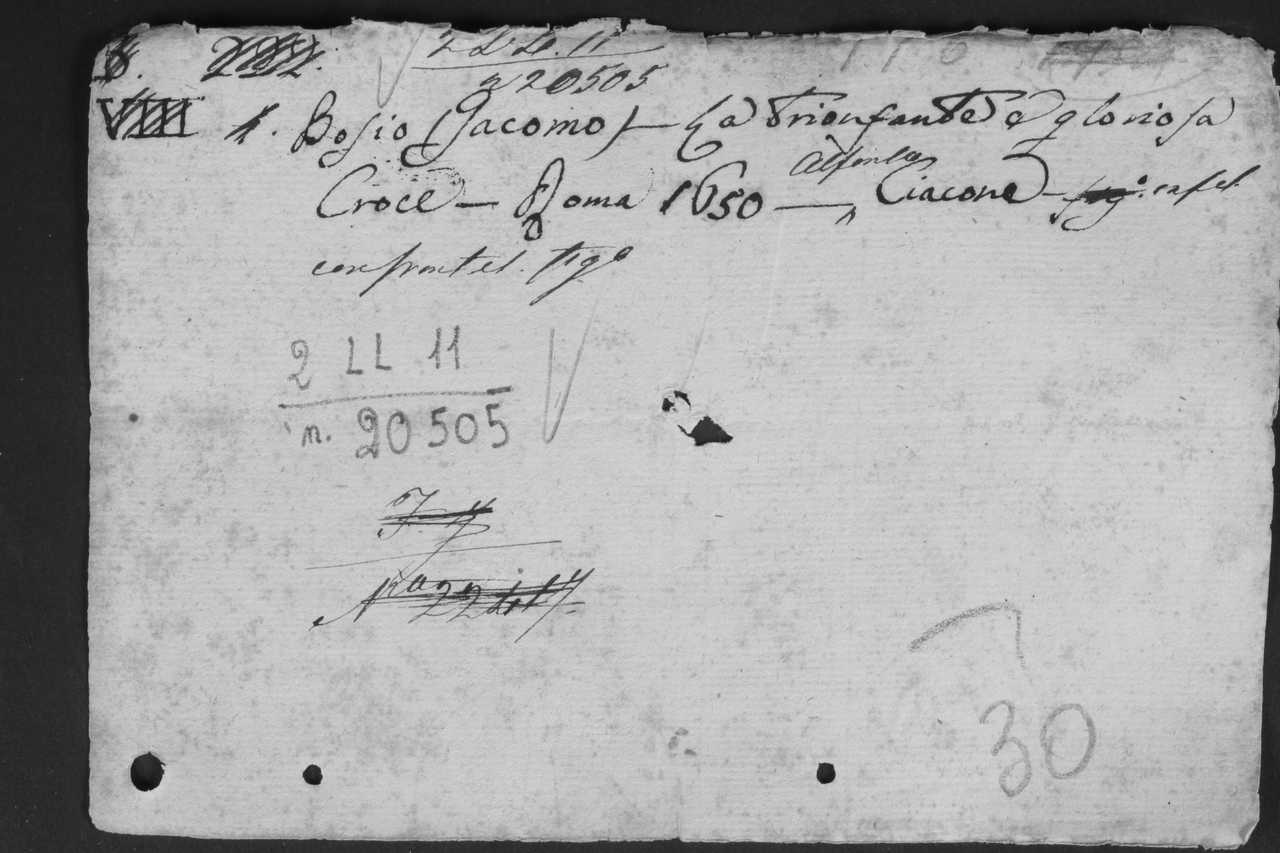 2 LL. 11
n 20505
VIII 1. Bosio (Giacomo) — La Trionfante e gloriosa
Croce — Roma 1650 — Ciacone —
con front. figº
2 LL 11
n. 20505
30